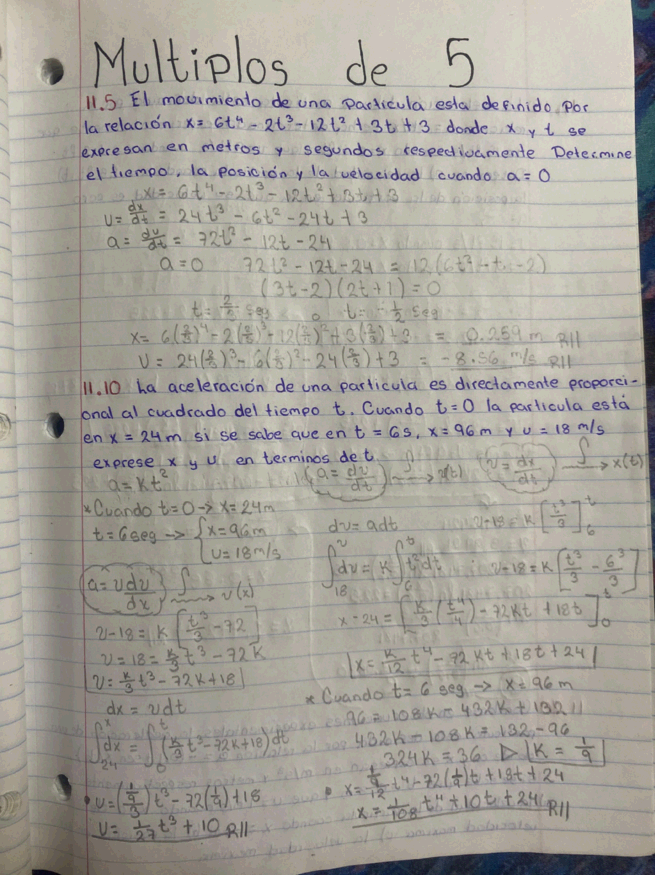 Multiplos de 5
11.5 El movimiento de una particula esta definido por
la relación x= 6t⁴ - 2t³ - 12t² + 3t + 3 donde x y t se
expresan en metros y segundos respectivamente Determine
el tiempo, la posición y la velocidad cuando a = 0
x = 6t⁴ - 2t³ - 12t² + 3t + 3
v = dx/dt = 24t³ - 6t² - 24t + 3
a = dv/dt = 72t² - 12t - 24
a = 0 72t² - 12t - 24 = 12(6t² - t - 2)
(3t-2)(2t+1) = 0
t = 2/3 seg o t = -1/2 seg
x= 6(2/3)⁴ - 2(2/3)³ - 12(2/3)² + 3(2/3) + 3 = 0.259 m R//
v = 24(2/3)³ - 6(2/3)² - 24(2/3) + 3 = -8.56 m/s R//
11.10 La aceleración de una particula es directamente proporci-
onal al cuadrado del tiempo t. Cuando t = 0 la particula está
en x = 24 m si se sabe que en t = 6s, x = 96 m y v = 18 m/s
exprese x y v en terminos de t
a = Kt² (a = dv/dt) ∫→ v(t) (v = dx/dt) ∫→ x(t)
* Cuando t = 0 → x = 24 m
t = 6 seg → { x = 96 m
v = 18 m/s
(a = v dv/dx) ∫→ v(x)
v - 18 = K [t³/3 - 72]
v = 18 = K/3 t³ - 72K
v = K/3 t³ - 72K + 18
dx = vdt
∫₂₄ˣ dx = ∫₀ᵗ (K/3 t³ - 72K + 18) dt
• v = (1/9/3) t³ - 72(1/9) + 18
v = 1/27 t³ + 10 R//
dv = adt v - 18 = K [t³/3]₆ᵗ
∫₁₈ᵛ dv = K ∫₆ᵗ t² dt v - 18 = K [t³/3 - 6³/3]
x - 24 = [K/3 (t⁴/4) - 72Kt + 18t]₀ᵗ
|x = K/12 t⁴ - 72Kt + 18t + 24|
* Cuando t = 6 seg → x = 96 m
96 = 108K - 432K + 132 //
432K - 108K = 132 - 96
324K = 36 ▷ |K = 1/9|
• x = 1/9/12 t⁴ - 72(1/9)t + 18t + 24
x = 1/108 t⁴ + 10t + 24 R//